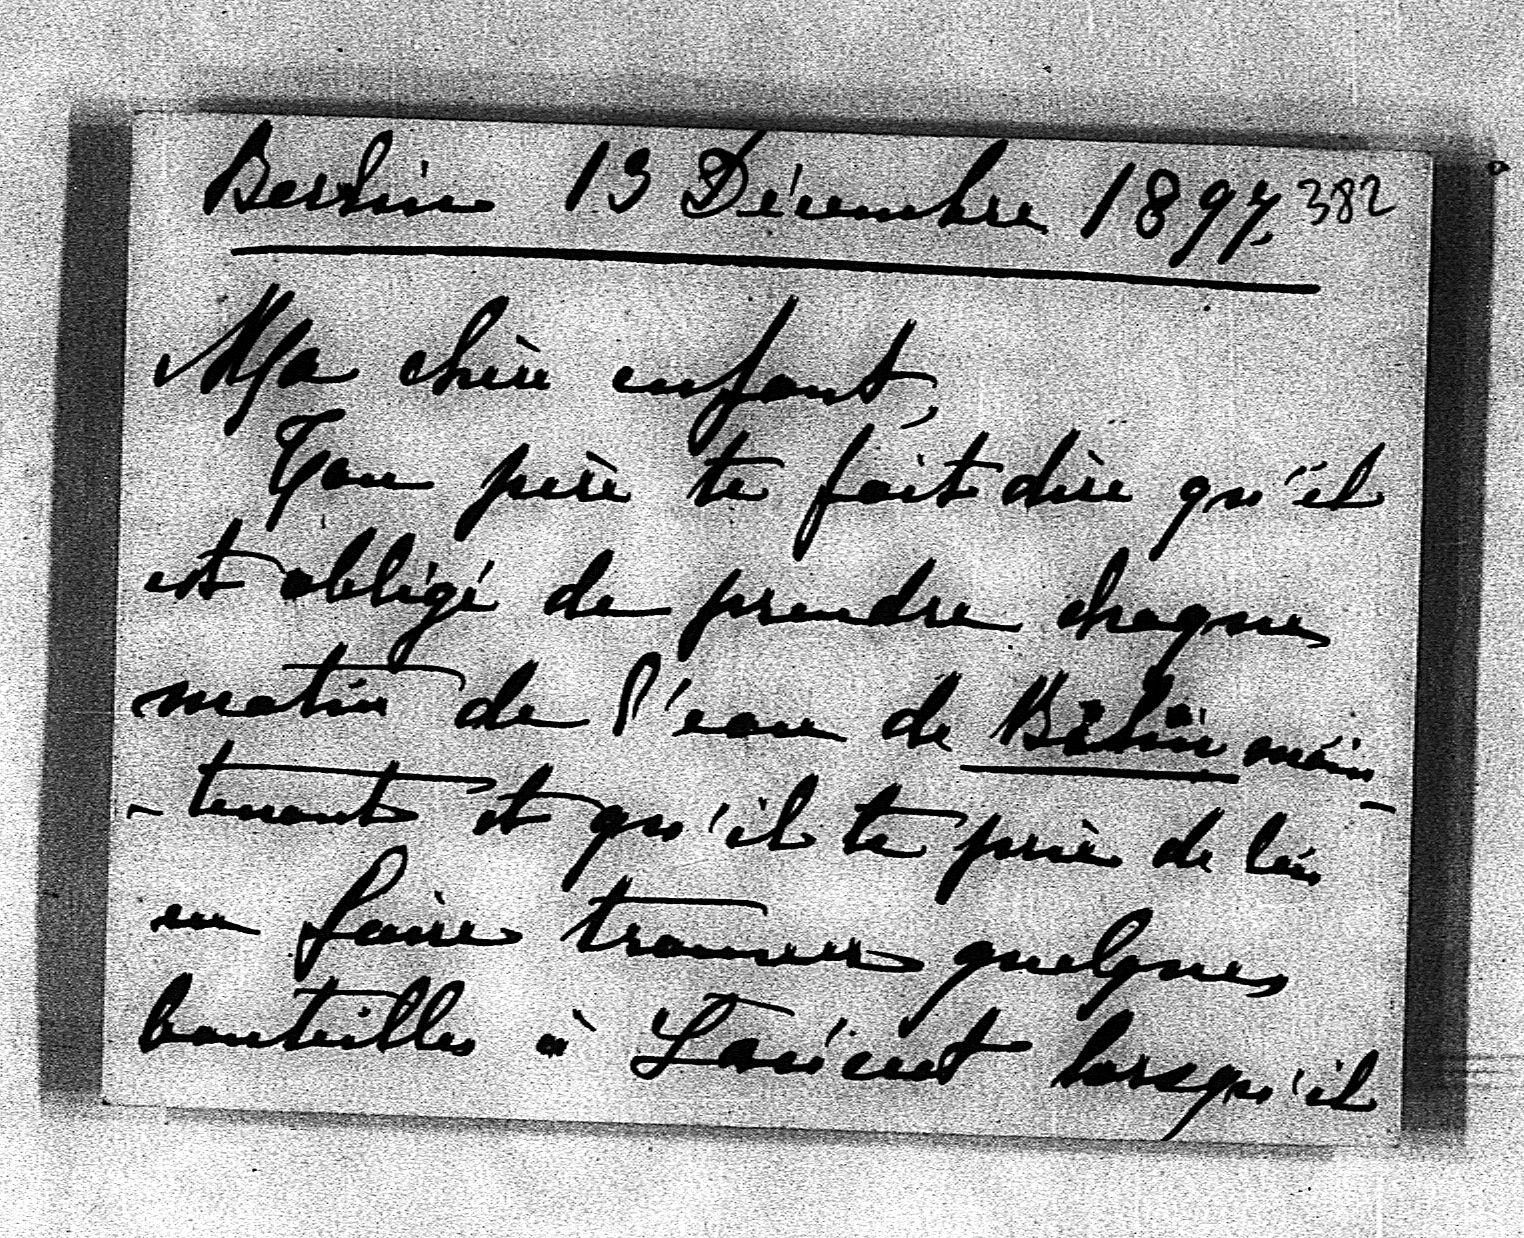 Berlin 13 Décembre 1897. 382
Ma chère enfant,
Ton père te fait dire qu'il
est obligé de prendre chaque
matin de l'eau de Bilin main
-tenant et qu'il te prie de lui
en faire trouver quelques
bouteilles à lorsqu'il